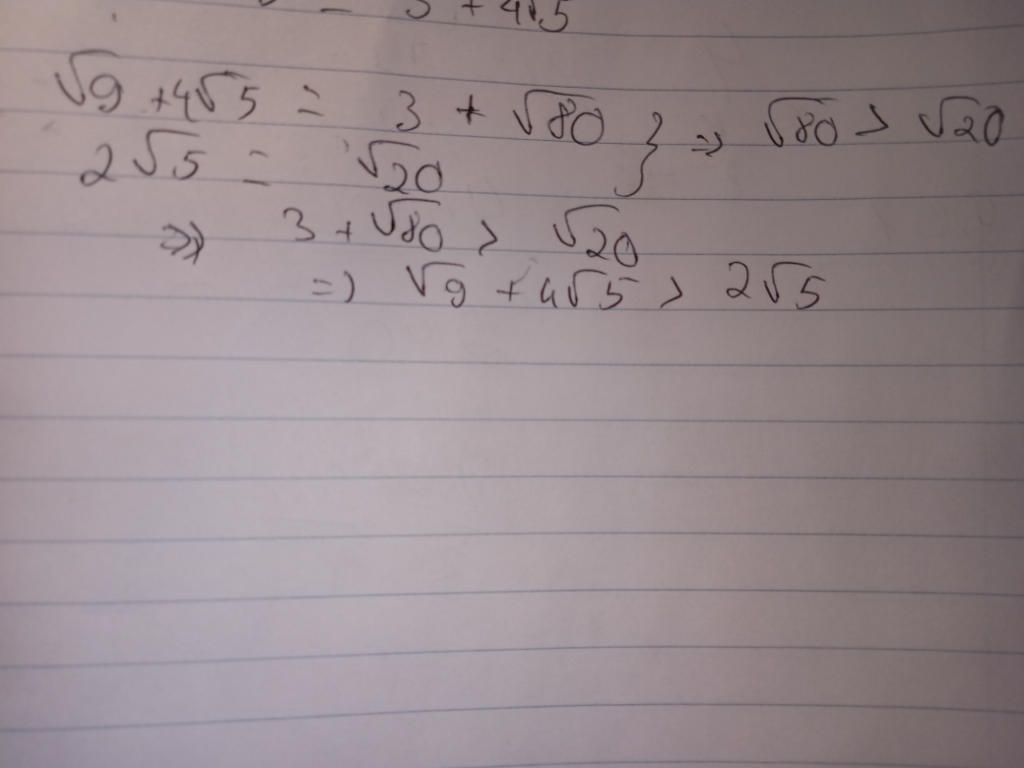 = 3 + 4√5
√9 + 4√5 = 3 + √80 } => √80 > √20
2√5 = √20
=> 3 + √80 > √20
=> √9 + 4√5 > 2√5